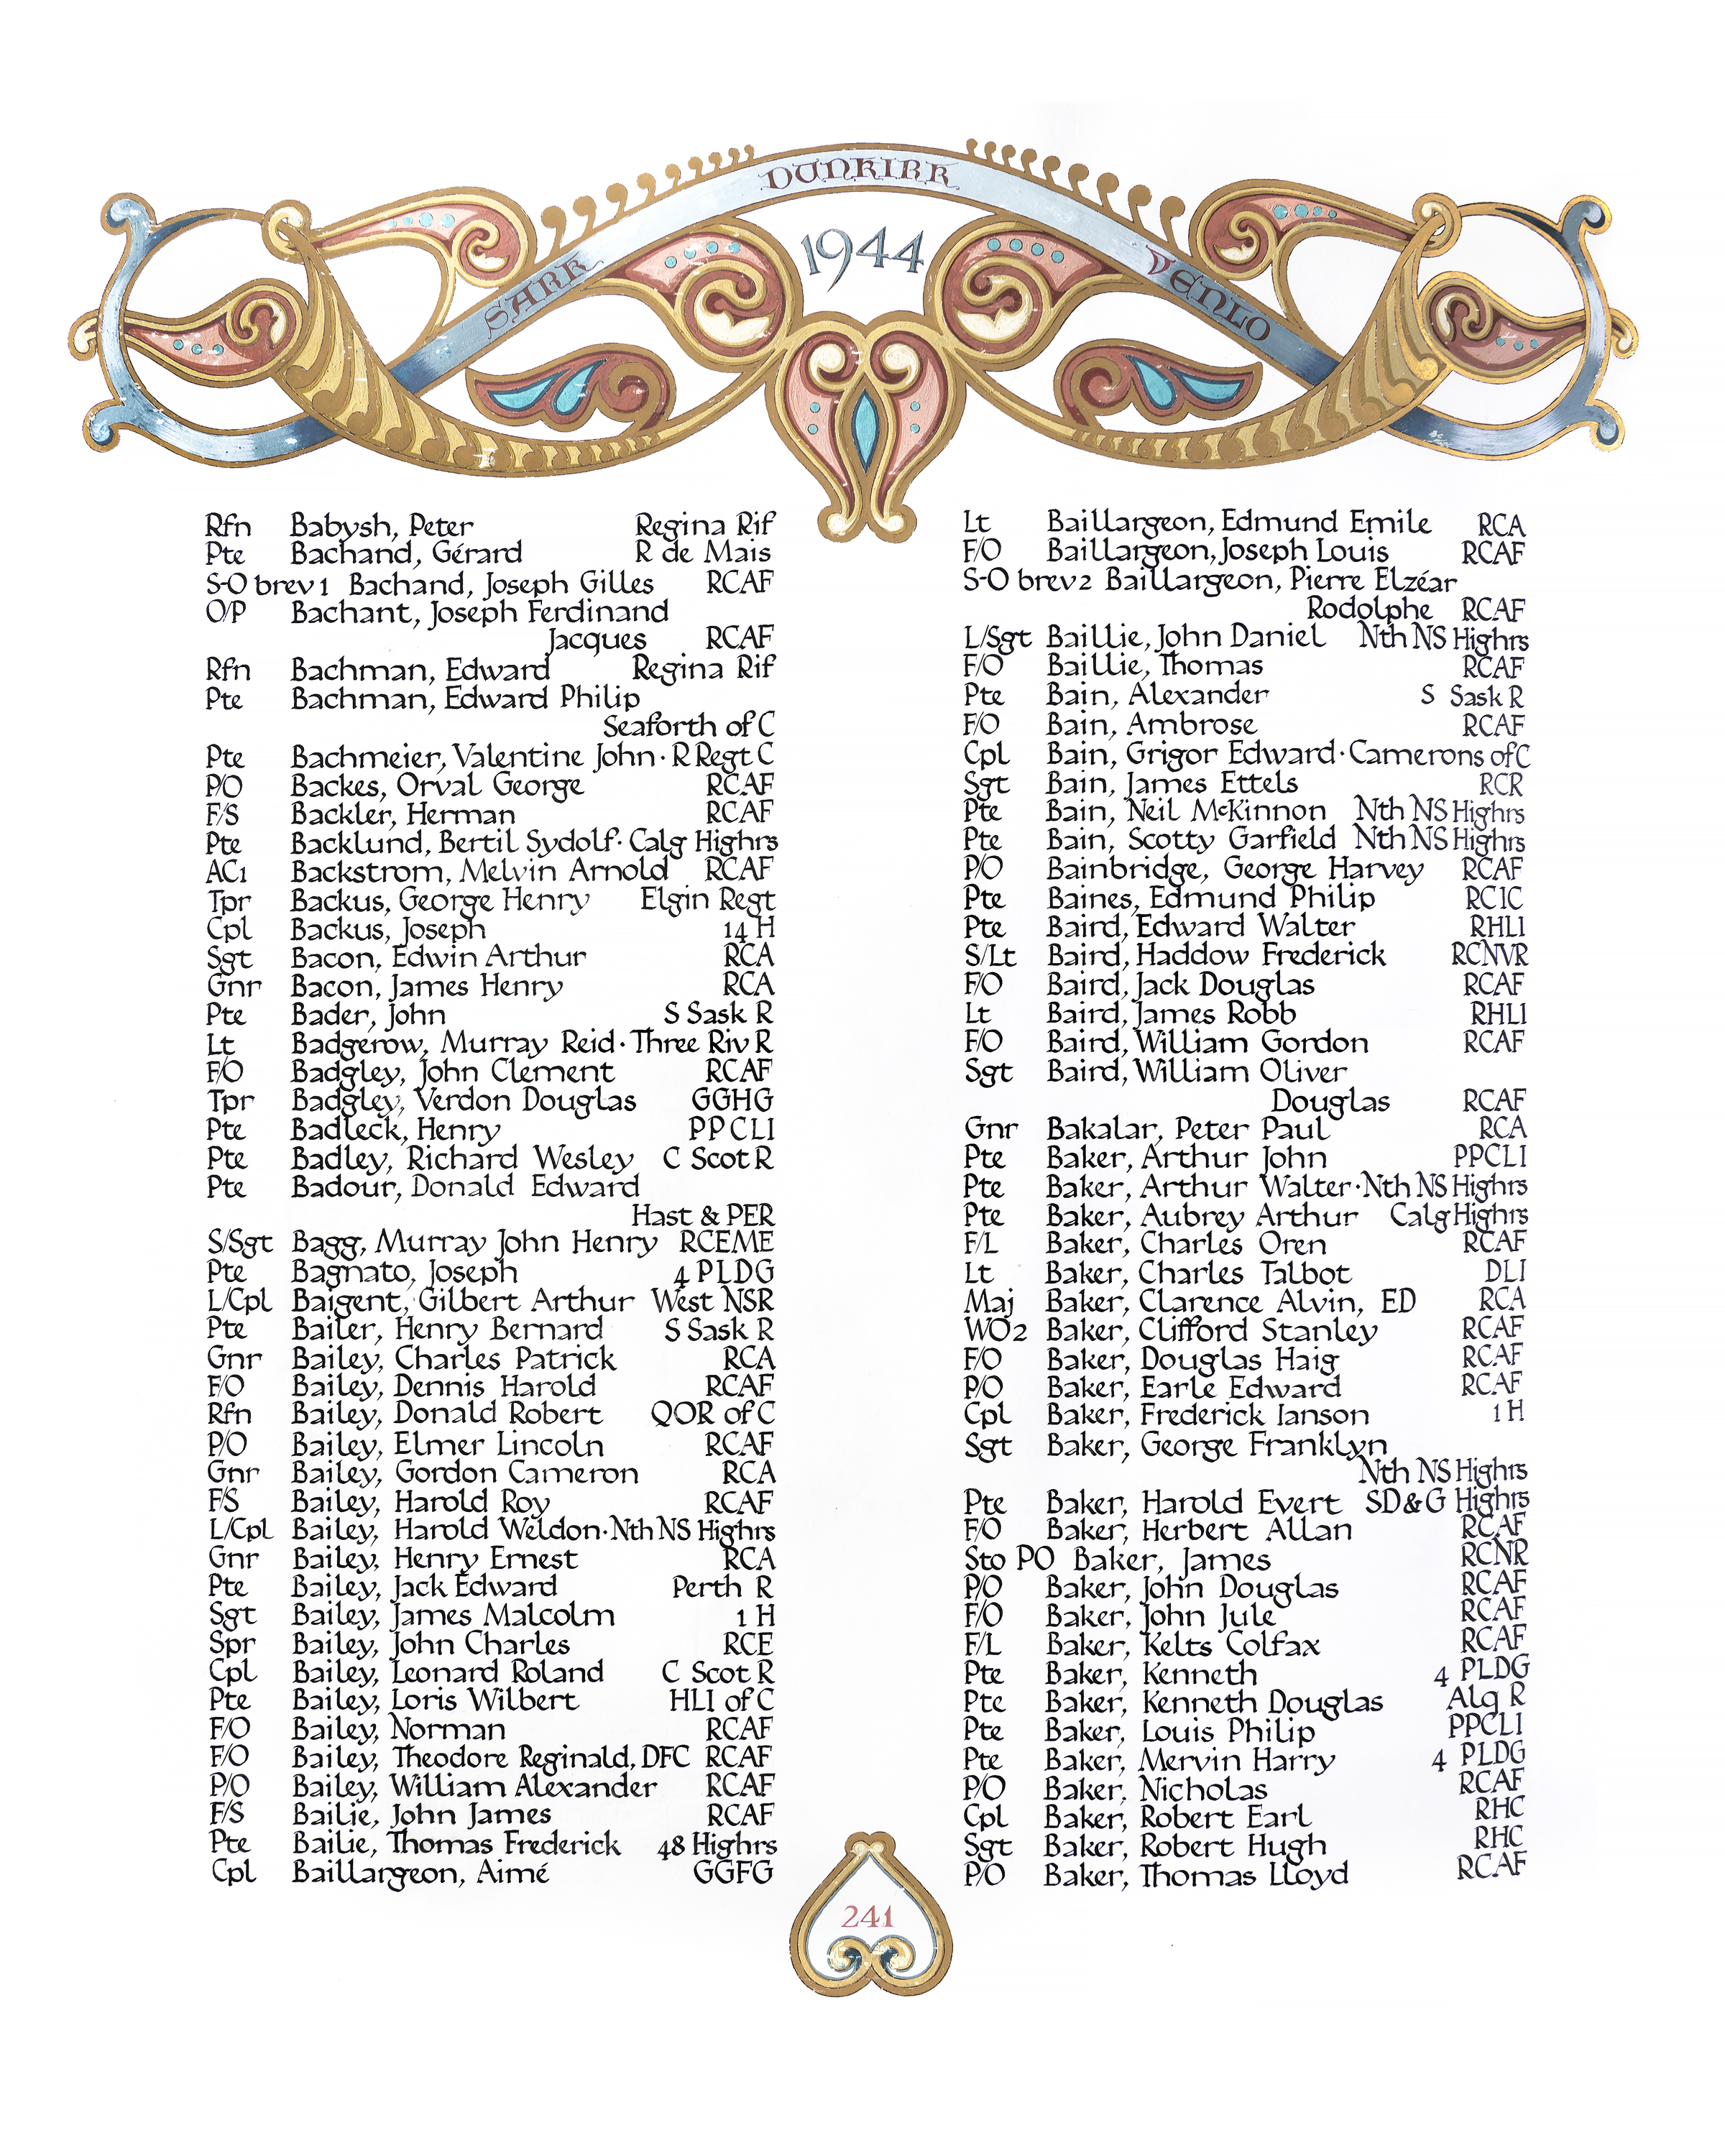 DUNKIRK
SARK
1944
VENLO
Rfn Babysh, Peter Regina Rif
Pte Bachand, Gérard R de Mais
S-O brev1 Bachand, Joseph Gilles RCAF
O/P Bachant, Joseph Ferdinand
Jacques RCAF
Rfn Bachman, Edward Regina Rif
Pte Bachman, Edward Philip
Seaforth of C
Pte Bachmeier, Valentine John · R Regt C
P/O Backes, Orval George RCAF
F/S Backler, Herman RCAF
Pte Backlund, Bertil Sydolf · Calg Highrs
AC1 Backstrom, Melvin Arnold RCAF
Tpr Backus, George Henry Elgin Regt
Cpl Backus, Joseph 14 H
Sgt Bacon, Edwin Arthur RCA
Gnr Bacon, James Henry RCA
Pte Bader, John S Sask R
Lt Badgerow, Murray Reid · Three Riv R
F/O Badgley, John Clement RCAF
Tpr Badgley, Verdon Douglas GGHG
Pte Badleck, Henry PPCLI
Pte Badley, Richard Wesley C Scot R
Pte Badour, Donald Edward
Hast & PER
S/Sgt Bagg, Murray John Henry RCEME
Pte Bagnato, Joseph 4 PLDG
L/Cpl Baigent, Gilbert Arthur West NSR
Pte Bailer, Henry Bernard S Sask R
Gnr Bailey, Charles Patrick RCA
F/O Bailey, Dennis Harold RCAF
Rfn Bailey, Donald Robert QOR of C
P/O Bailey, Elmer Lincoln RCAF
Gnr Bailey, Gordon Cameron RCA
F/S Bailey, Harold Roy RCAF
L/Cpl Bailey, Harold Weldon · Nth NS Highrs
Gnr Bailey, Henry Ernest RCA
Pte Bailey, Jack Edward Perth R
Sgt Bailey, James Malcolm 1 H
Spr Bailey, John Charles RCE
Cpl Bailey, Leonard Roland C Scot R
Pte Bailey, Loris Wilbert HLI of C
F/O Bailey, Norman RCAF
F/O Bailey, Theodore Reginald, DFC RCAF
P/O Bailey, William Alexander RCAF
F/S Bailie, John James RCAF
Pte Bailie, Thomas Frederick 48 Highrs
Cpl Baillargeon, Aimé GGFG
Lt Baillargeon, Edmund Emile RCA
F/O Baillargeon, Joseph Louis RCAF
S-O brev2 Baillargeon, Pierre Elzéar
Rodolphe RCAF
L/Sgt Baillie, John Daniel Nth NS Highrs
F/O Baillie, Thomas RCAF
Pte Bain, Alexander S Sask R
F/O Bain, Ambrose RCAF
Cpl Bain, Grigor Edward · Camerons of C
Sgt Bain, James Ettels RCR
Pte Bain, Neil McKinnon Nth NS Highrs
Pte Bain, Scotty Garfield Nth NS Highrs
P/O Bainbridge, George Harvey RCAF
Pte Baines, Edmund Philip RCIC
Pte Baird, Edward Walter RHLI
S/Lt Baird, Haddow Frederick RCNVR
F/O Baird, Jack Douglas RCAF
Lt Baird, James Robb RHLI
F/O Baird, William Gordon RCAF
Sgt Baird, William Oliver
Douglas RCAF
Gnr Bakalar, Peter Paul RCA
Pte Baker, Arthur John PPCLI
Pte Baker, Arthur Walter · Nth NS Highrs
Pte Baker, Aubrey Arthur Calg Highrs
F/L Baker, Charles Oren RCAF
Lt Baker, Charles Talbot DLI
Maj Baker, Clarence Alvin, ED RCA
WO2 Baker, Clifford Stanley RCAF
F/O Baker, Douglas Haig RCAF
P/O Baker, Earle Edward RCAF
Cpl Baker, Frederick Ianson 1 H
Sgt Baker, George Franklyn
Nth NS Highrs
Pte Baker, Harold Evert SD&G Highrs
F/O Baker, Herbert Allan RCAF
Sto PO Baker, James RCNR
P/O Baker, John Douglas RCAF
F/O Baker, John Jule RCAF
F/L Baker, Kelts Colfax RCAF
Pte Baker, Kenneth 4 PLDG
Pte Baker, Kenneth Douglas Alq R
Pte Baker, Louis Philip PPCLI
Pte Baker, Mervin Harry 4 PLDG
P/O Baker, Nicholas RCAF
Cpl Baker, Robert Earl RHC
Sgt Baker, Robert Hugh RHC
P/O Baker, Thomas Lloyd RCAF
241